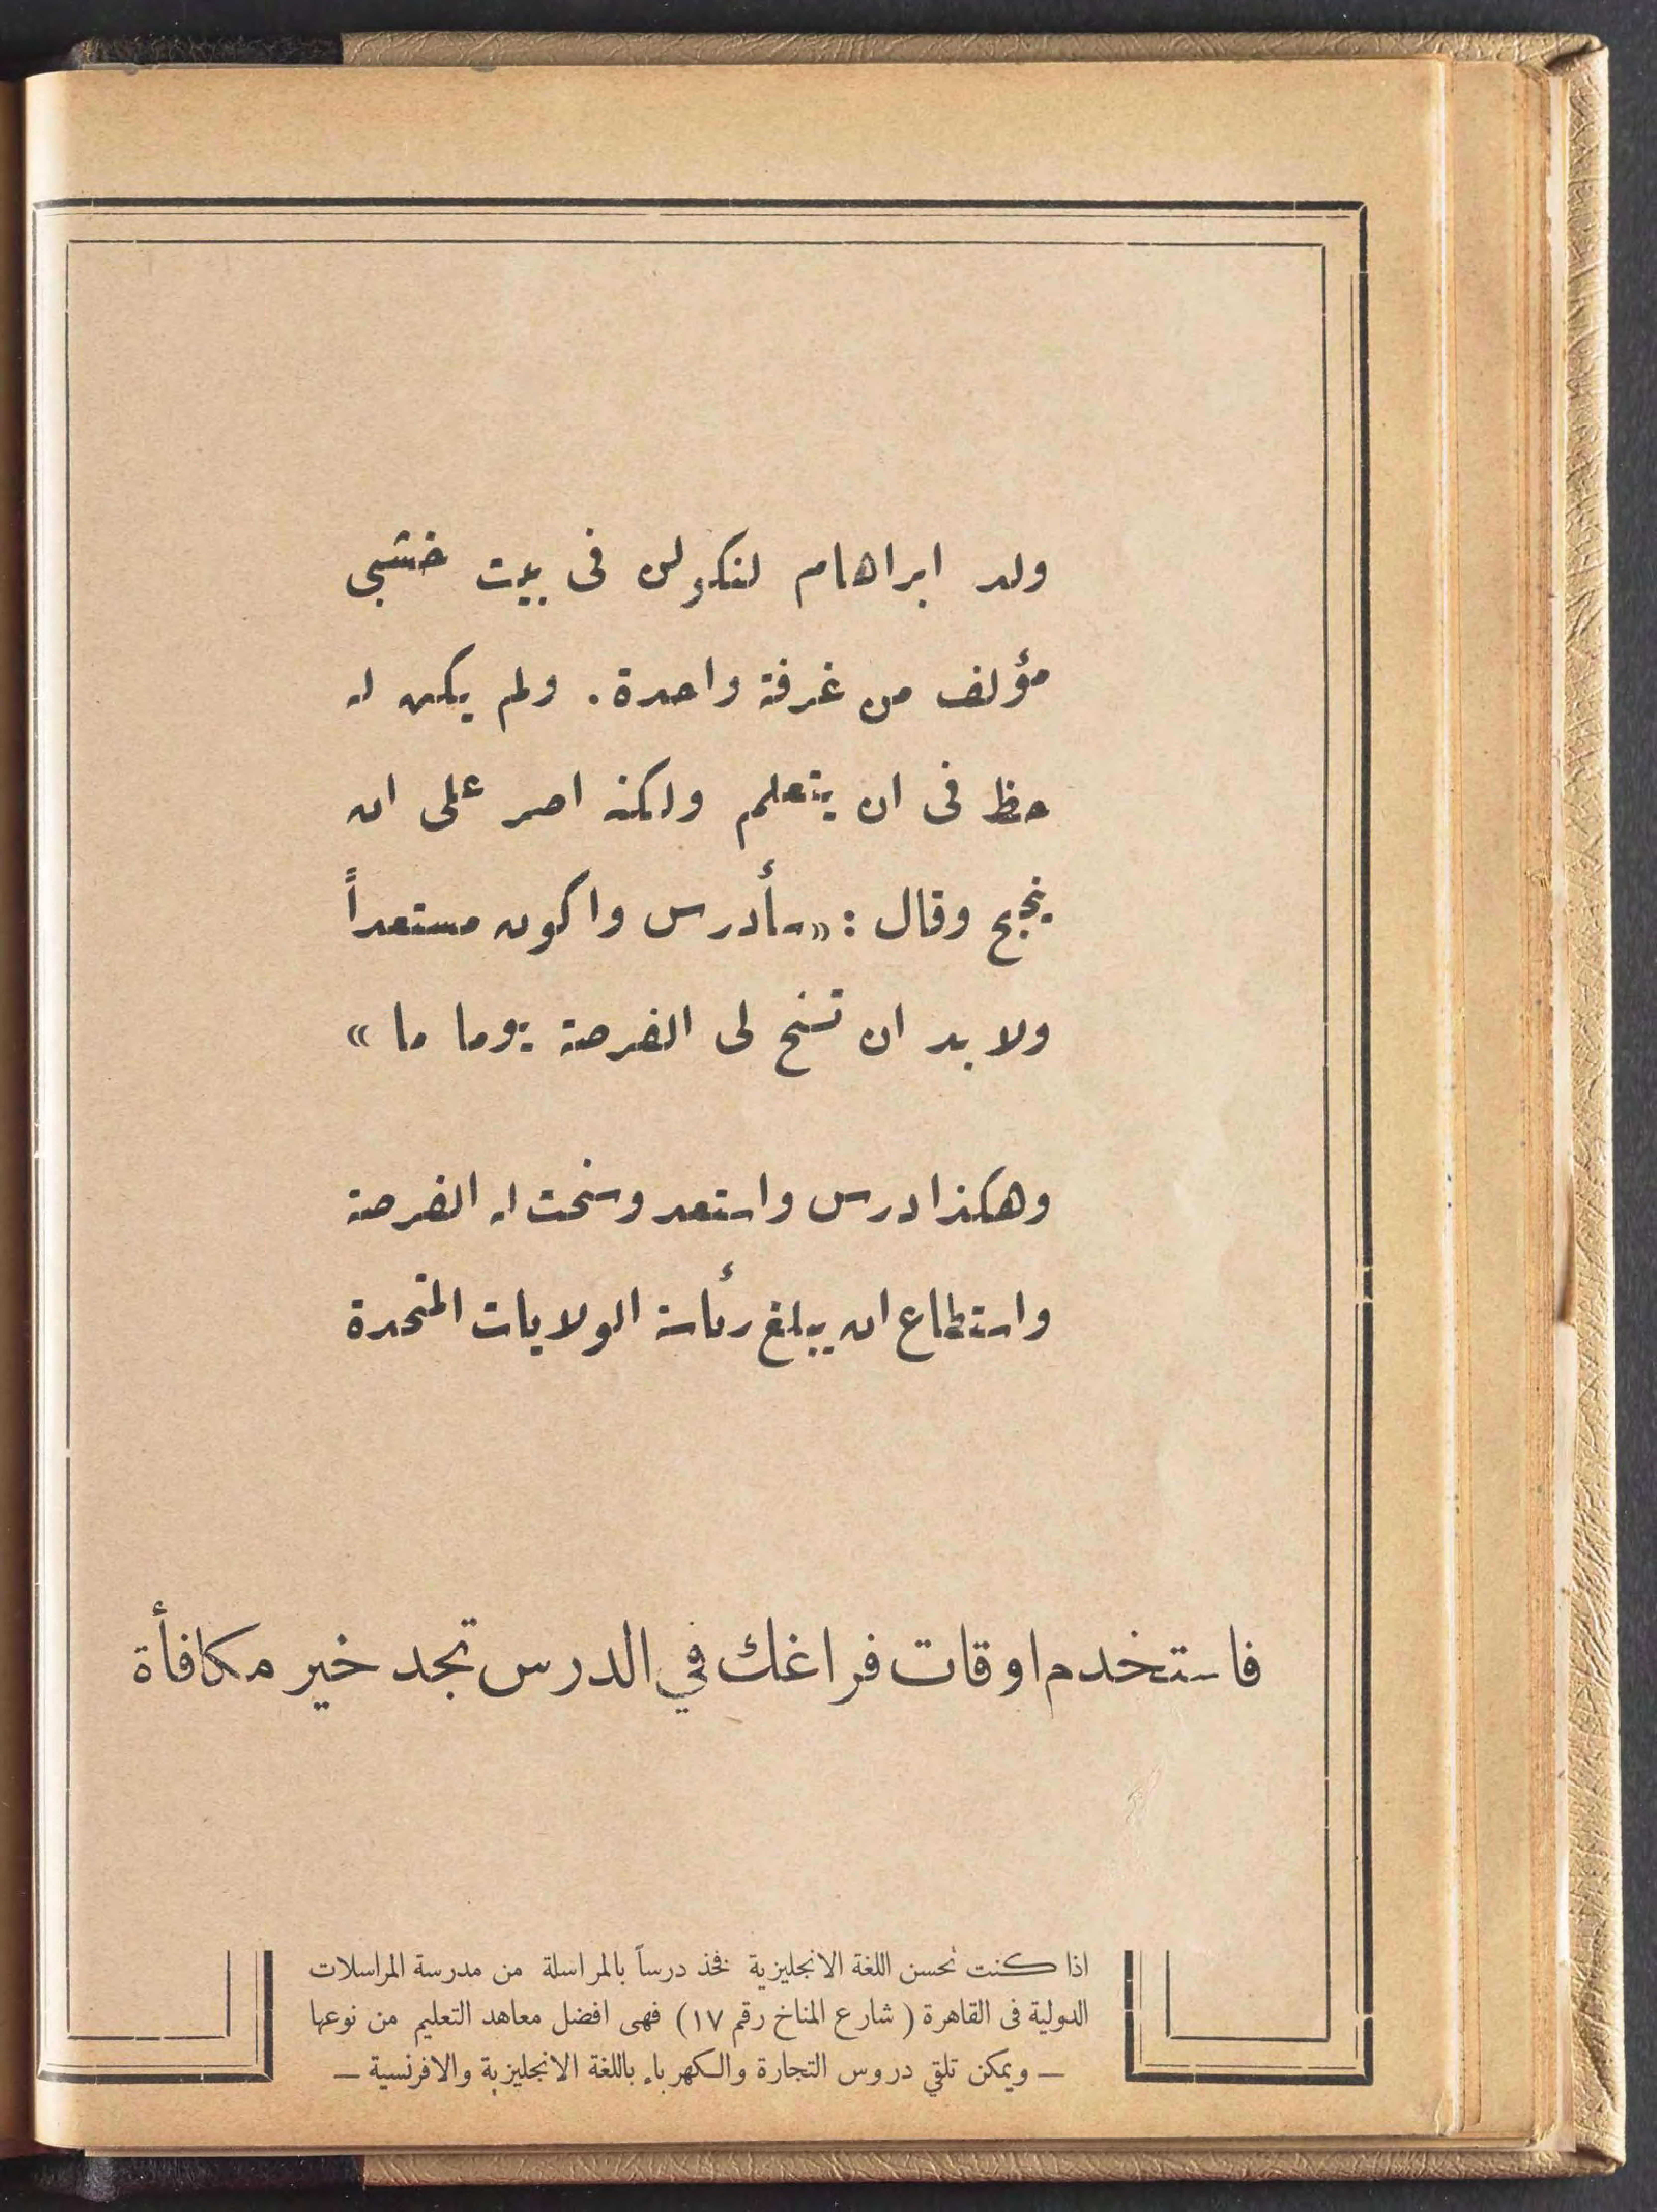 ولد ابراهام لنكولن فى بيت خشبي
مؤلف من غرفة واحدة . ولم يكن له
حظ فى ان يتعلم ولكنه اصر على ان
ينجح وقال : «سأدرس واكون مستعداً
ولا بد ان تسنح لى الفرصة يوما ما »
وهكذا درس واستعد وسنحت له الفرصة
واستطاع ان يبلغ رئاسة الولايات المتحدة
فاستخدم اوقات فراغك في الدرس تجد خير مكافأة
اذا كنت تحسن اللغة الانجليزية فخذ درساً بالمراسلة من مدرسة المراسلات
الدولية فى القاهرة ( شارع المناخ رقم ١٧ ) فهى افضل معاهد التعليم من نوعها
— ويمكن تلقي دروس التجارة والكهرباء باللغة الانجليزية والافرنسية —